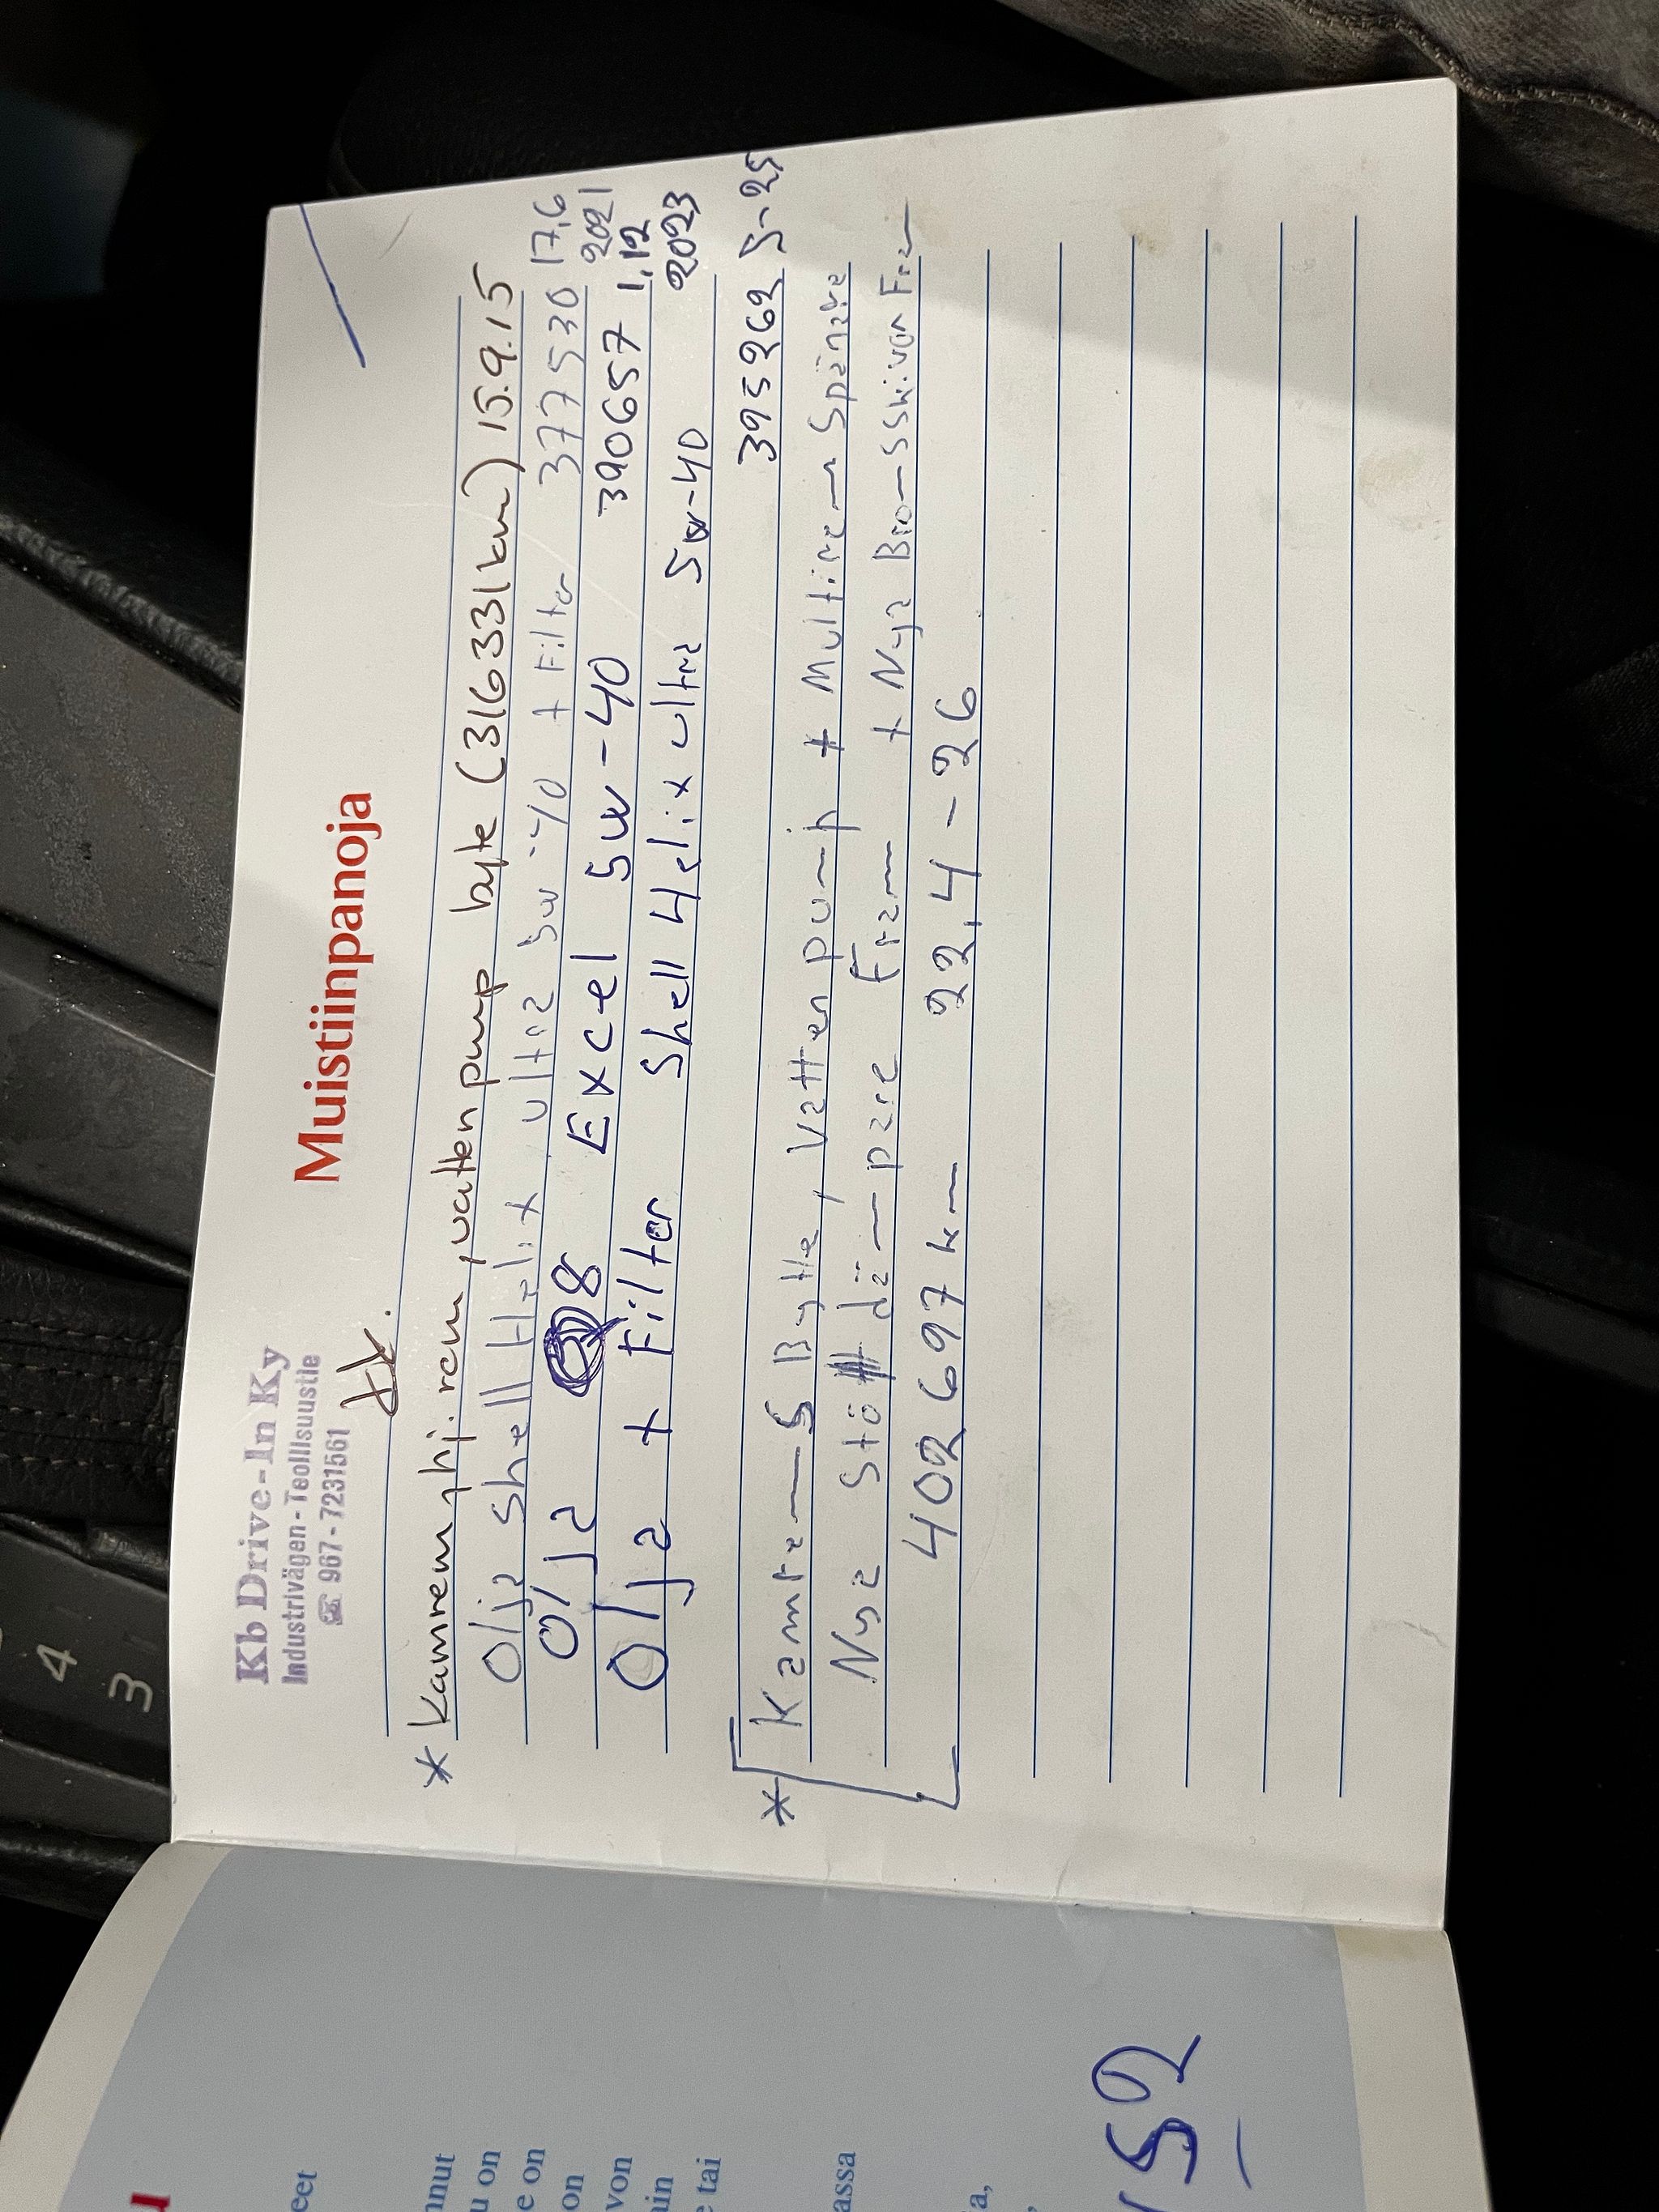 Kb Drive-In Ky
Industrivägen-Teollisuustie
☎ 967-7231561
Muistiinpanoja
* Kamrem, hj.rem, vattenpump byte (316331km) 15.9.15
Olja Shell Helix ultra 5w-40 + Filter 377530 17.6
2021
Olja 8 Excel 5w-40 390657 1.12
2023
Olja + Filter Shell Helix ultra 5w-40
395262 5-25
* Kamrem Bytte, Vattenpump + Multirem Spännare
Nya Stö dämpare Fram + Nya Bromsskivor Fram
402697km 22.4-26
4
3
u
eet
nnut
u on
e on
on
von
in
e tai
assa
a,
52